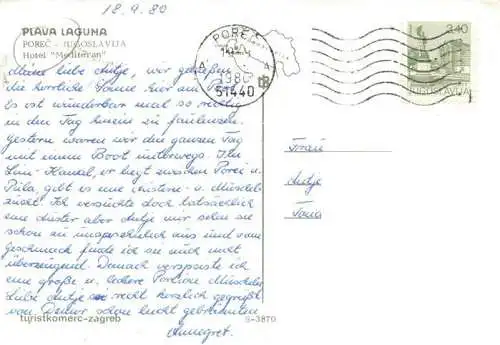 18.9.80
PLAVA LAGUNA
POREČ - JUGOSLAVIJA
Hotel "Mediteran"
Meine liebe Antje, wir genießen
die herrliche Sonne hier am
Es ist wunderbar mal so richtig
in den Tag hinein zu faulenzen.
Gestern waren wir den ganzen Tag
mit einem Boot unterwegs. Im
Lim-Kanal, er liegt zwischen Poreč u.
Pula, gibt es eine Austern- u. Muschel-
zucht. Ich versuchte doch tatsächlich
eine Auster aber Antje mir sehen sie
schon zu unansehnlich aus und vom
Geschmack finde ich sie auch nicht
überzeugend. Danach verspeiste ich
eine große u. leckere Portion Muscheln.
Liebe Antje sei recht herzlich gegrüßt
von Deiner schon leicht gebräunten
Annegret.
turistkomerc-zagreb
S-3870
POREČ
1980
51440
3.40
JUGOSLAVIJA
Frau
Antje